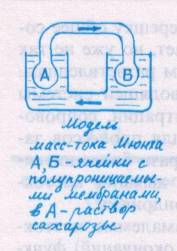 А
Б
Модель
масс-тока Мюнха
А, Б - ячейки с
полупроницаемы-
ми мембранами,
в А - раствор
сахарозы